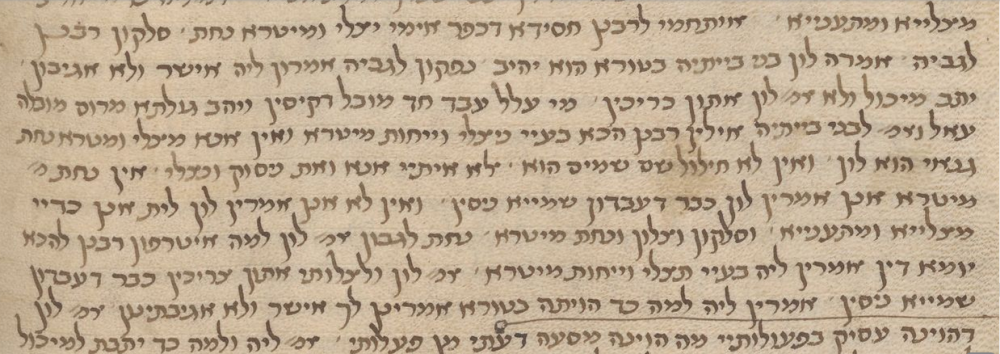 מצלייא ומתענייא · איתחמי לרבנן חסידא דכפר אימי יצלי ומיטרא נחת · סלקון רבנן
לגביה · אמרה לון בני בייתיה בטורא הוא יהיב · נפקון לגביה אמרון ליה אישר ולא אגיבון ·
יתב מיכול ולא אמ' לון אתון כריכין · מי עלל עבד חד מובל דקיסין ויהב גולתא מרום מובלה
עאל ואמ' לבני בייתיה אילין רבנן הכא בעיי ניצלי וייחות מיטרא ואין אנא מיצלי ומטרא נחת
גנאיי הוא לון · ואין לא חילול שם שמים הוא · אלא איתיי אנא ואת ניסוק ונצלי · אין נחת מ'
מיטרא אנן אמרין לון כבר דעבדון שמייא ניסין · ואין לא אנן אמרין לון לית אנן כדיי
מצלייא ומתענייא · וסלקון וצלון ונחת מיטרא · נחת לגבון אמ' לון למה איטרפון רבנן להכא
יומא דין אמרין ליה בעיי תצלי וייחות מיטרא · אמ' לון ולצלותי אתון צריכין כבר דעבדון
שמייא ניסין · אמרין ליה למה כד הויתה בטורא אמרינן לך אישר ולא אגיבתינן אמ' לון
דהוינה עסיק בפעולותיי מה הוינה מסעה דעתי מן פעלותי · אמ' ליה ולמה כד יתבת למיכול